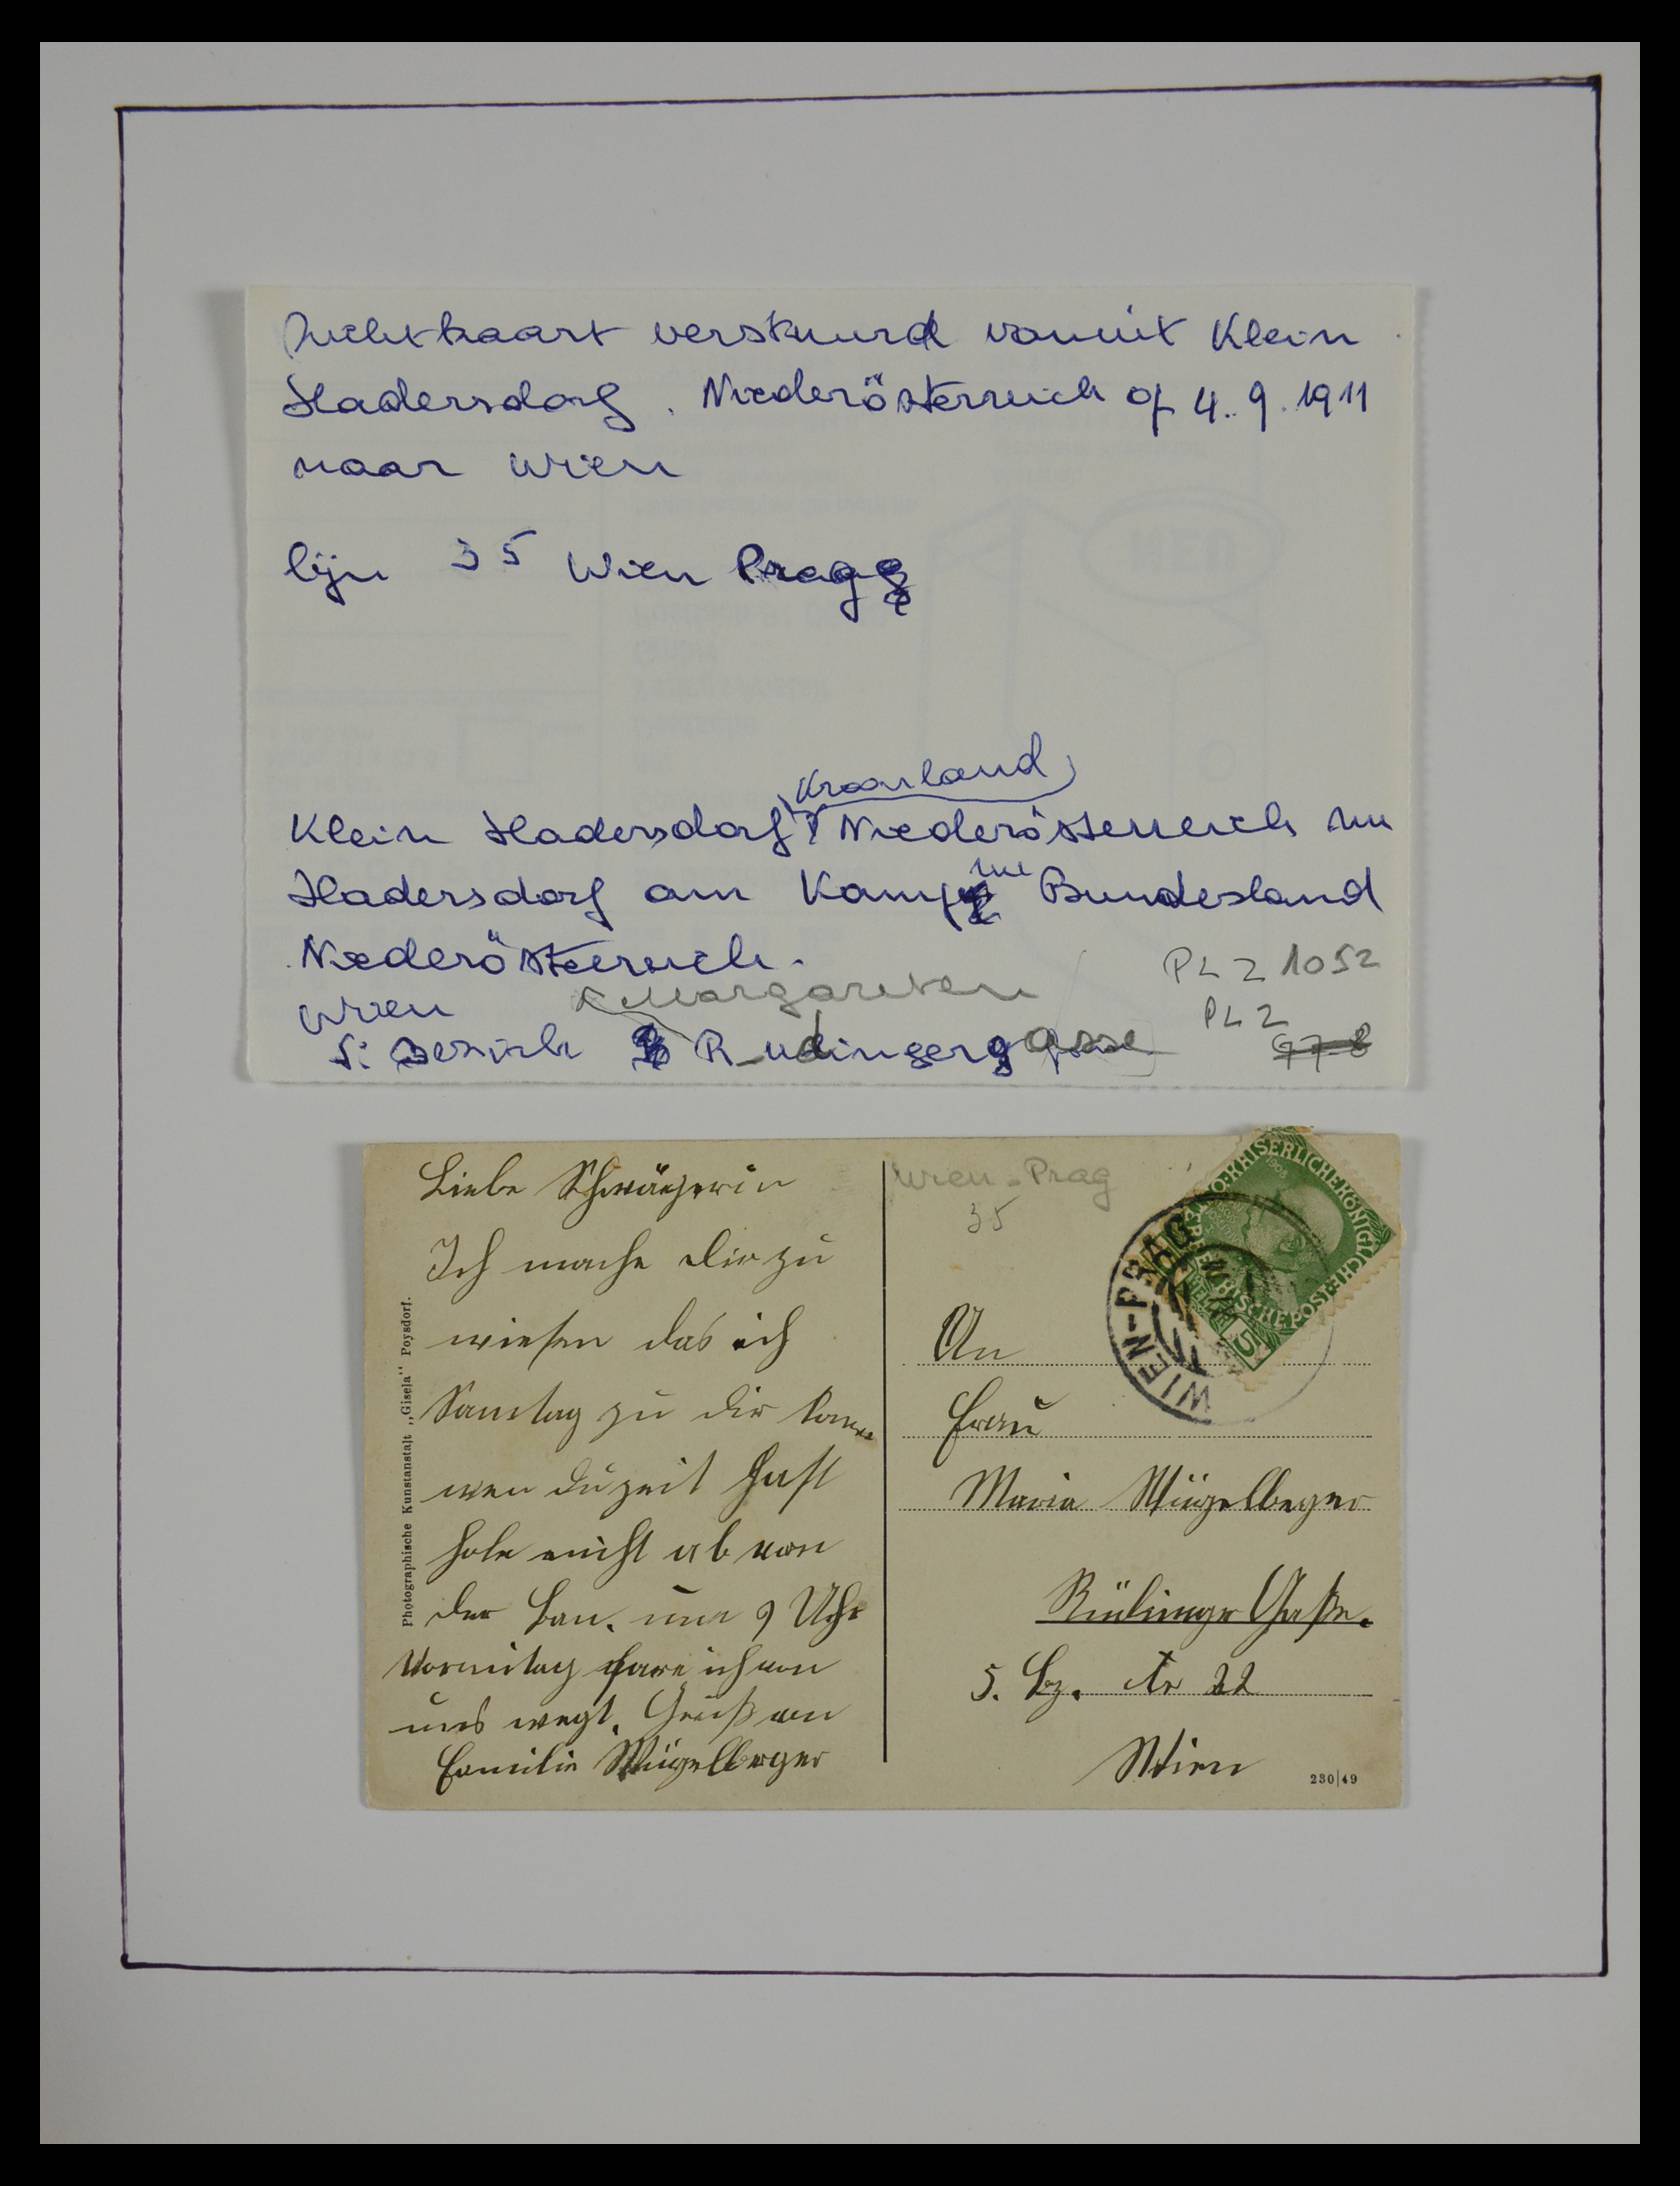 Zichtkaart verstuurd vanuit Klein
Hadersdorf. Niederösterreich op 4.9.1911
naar Wien
lijn 35 Wien Prag
Kroonland
Klein Hadersdorf Niederösterreich nu
Hadersdorf am Kamp nu Bundesland
Niederösterreich.
Margareten
PLZ 1052
Wien
PLZ
5: Bezirk Rudingergasse
978
Liebe Schwägerin
Ich mache dir zu
wiesen das ich
Samstag zu dir komme
wen du zeit hast
hole mich ab von
der Ban. um 9 Uhr
Vormitag fare ich von
uns wegt. Gruß an
Familie Mügelberger
Photographische Kunstanstalt „Gisela“ Poysdorf.
Wien-Prag
35
KAISERLICHE KÖNIGLICHE
ÖSTERREICHISCHE POST
1908
5
WIEN-PRAG
An
Frau
Maria Mügelbeger
Rüdinger Gaße.
5. Bz. Nr 22
Wien
230|49